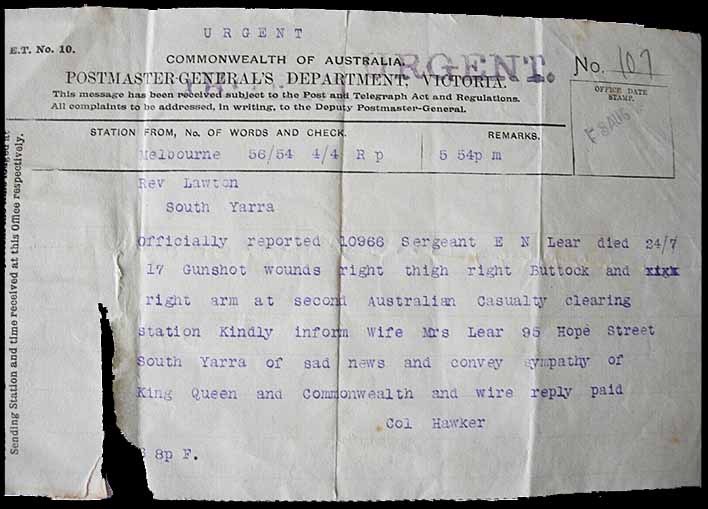 URGENT
E.T. No. 10.
URGENT.
COMMONWEALTH OF AUSTRALIA.
No. 107
POSTMASTER-GENERAL'S DEPARTMENT, VICTORIA.
This message has been received subject to the Post and Telegraph Act and Regulations.
All complaints to be addressed, in writing, to the Deputy Postmaster-General.
OFFICE DATE
STAMP.
8 AUG
STATION FROM, No. OF WORDS AND CHECK.
REMARKS.
Melbourne 56/54 4/4 R p 5 54p m
Rev Lawton
South Yarra
Officially reported 10966 Sergeant E N Lear died 24/7
17 Gunshot wounds right thigh right Buttock and
right arm at second Australian Casualty clearing
station Kindly inform Wife Mrs Lear 95 Hope Street
South Yarra of sad news and convey sympathy of
King Queen and Commonwealth and wire reply paid
Col Hawker
8p F.
Sending Station and time received at this Office respectively.